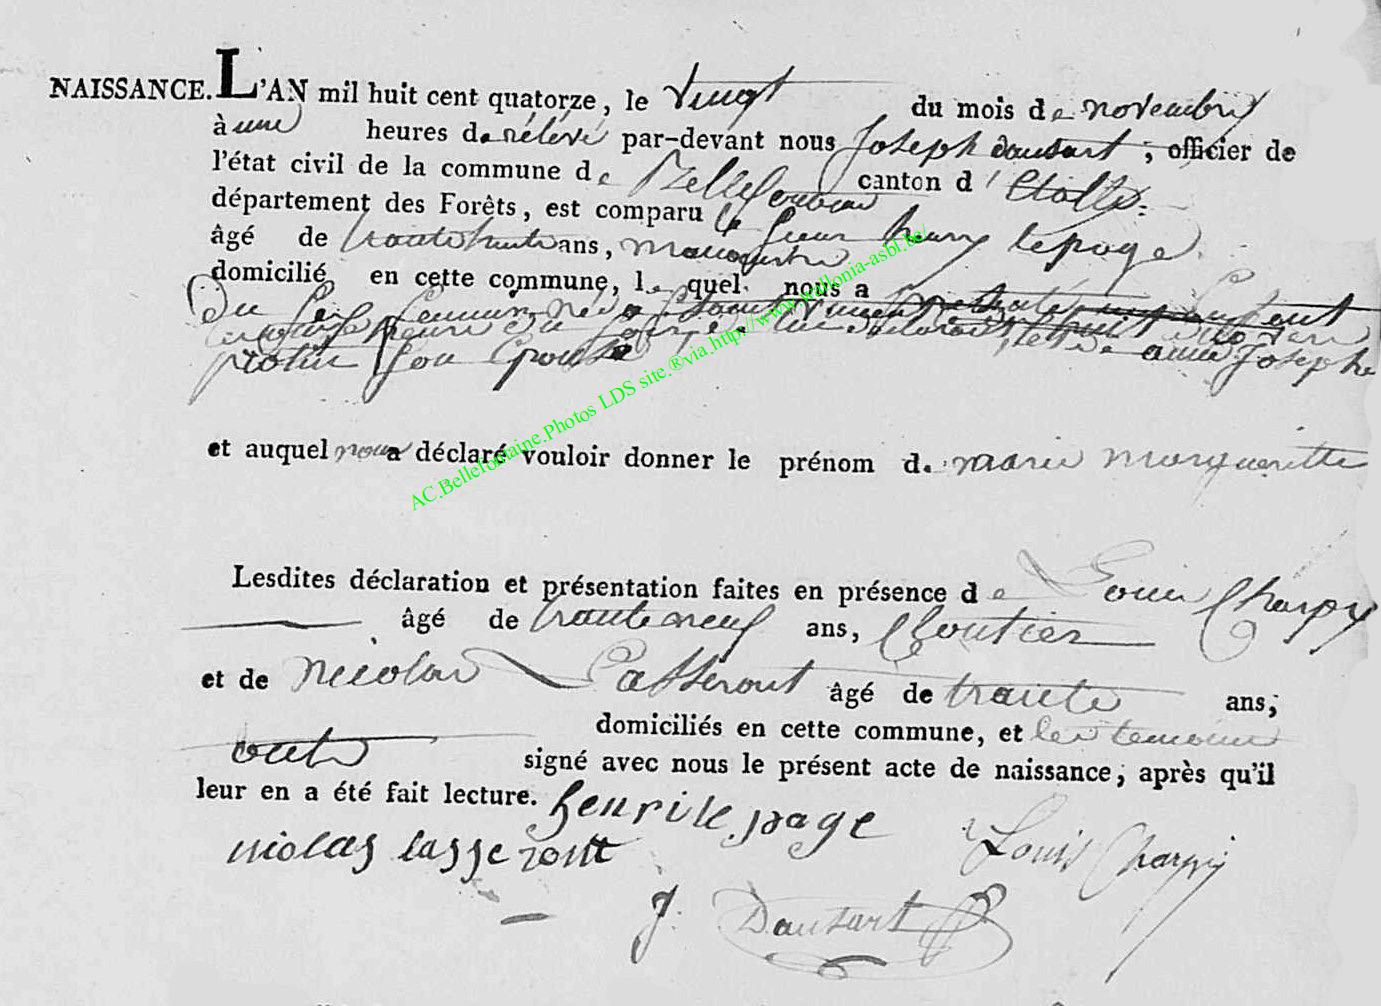 NAISSANCE. L'AN mil huit cent quatorze, le vingt du mois de novembre
à une heures de rélévé par-devant nous Joseph dausart, officier de
l'état civil de la commune de Bellefontaine canton d'Etalle
département des Forêts, est comparu le sieur henry lepage
âgé de trante huit ans, manouvrié
domicilié en cette commune, lequel nous a
du Sexe feminin né
heure du
son Epouse anne Josephe
et auquel nous a déclaré vouloir donner le prénom de marie margueritte
Lesdites déclaration et présentation faites en présence de Louis Charpy
âgé de trante neuf ans, Cloutier
et de Nicolas Lasseront âgé de trante ans;
domiciliés en cette commune, et les temoins
ont signé avec nous le présent acte de naissance, après qu'il
leur en a été fait lecture. henri le page
nicolas lasseront Louis Charpy
J. Dausart
AC.Bellefontaine.Photos LDS site.®via.http://www.wallonia-asbl.be/